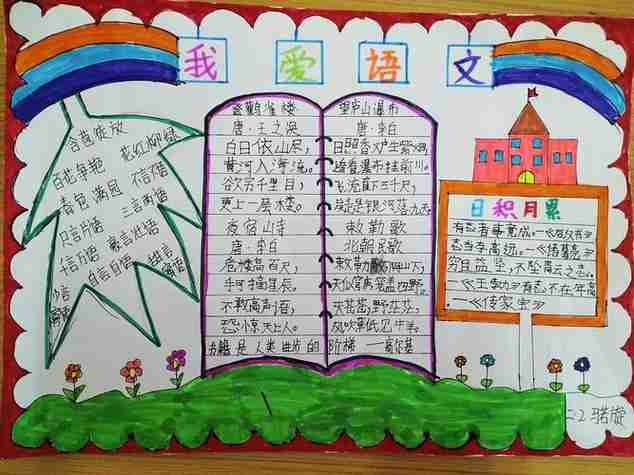 我爱语文
含苞徒放
花红柳绿
百花争艳
不言不语
春色满园
三言两语
只言片语
千言万语
豪言壮语
自言自语
登鹳雀楼
唐·王之涣
白日依山尽，
黄河入海流。
欲穷千里目，
更上一层楼。
夜宿山寺
唐·李白
危楼高百尺，
手可摘星辰。
不敢高声语，
恐惊天上人。
望庐山瀑布
唐·李白
日照香炉生紫烟，
遥看瀑布挂前川。
飞流直下三千尺，
疑是银河落九天。
敕勒歌
北朝民歌
敕勒川阴山下，
天似穹庐笼盖四野。
天苍苍，野茫茫，
风吹草低见牛羊。
书籍是人类进步的阶梯——高尔基
日积月累
有志者事竟成。—《后汉书》
志当存高远。—《诸葛亮》
穷且益坚，不坠青云之志。
—《王勃》有志不在年高
—《传家宝》
二.2